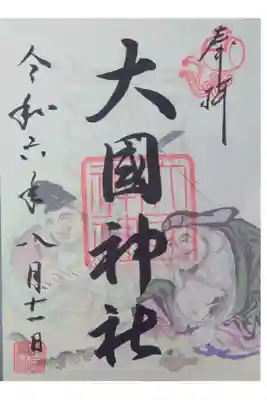 奉拝
大國神社
令和六年八月十一日